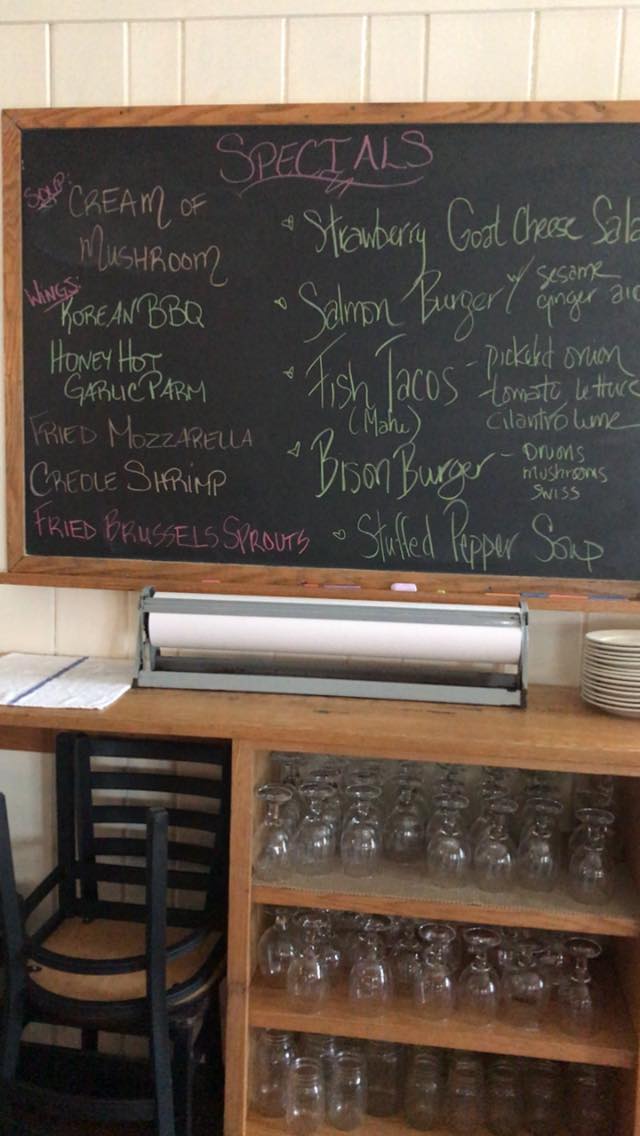 SPECIALS
SOUP:
CREAM OF
MUSHROOM
WINGS:
KOREAN BBQ
HONEY HOT
GARLIC PARM
FRIED MOZZARELLA
CREOLE SHRIMP
FRIED BRUSSELS SPROUTS
Strawberry Goat Cheese Sala
Salmon Burger w/ sesame
ginger aio
Fish Tacos - pickled onion
(Mahi) tomato lettuce
cilantro lime
Bison Burger - onions
mushrooms
swiss
Stuffed Pepper Soup